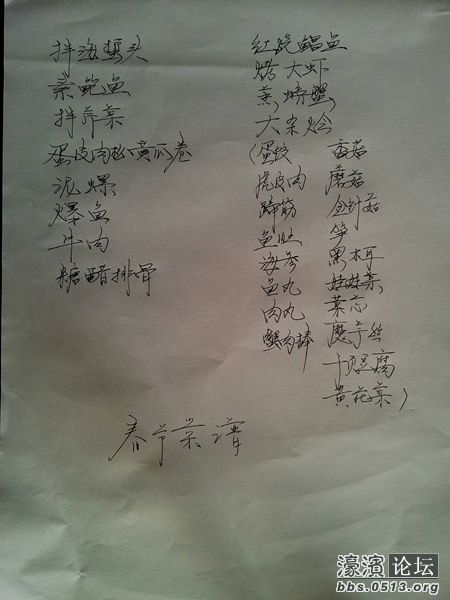 拌海蜇头
素鲍鱼
拌芹菜
蛋皮肉松黄瓜卷
泥螺
爆鱼
牛肉
糖醋排骨
红烧鲳鱼
烤大虾
蒸螃蟹
大杂烩
(蛋饺 香菇
虎皮肉 蘑菇
蹄筋 金针菇
鱼肚 笋
海参 黑木耳
鱼丸 娃娃菜
肉丸 菜芯
蟹肉棒 魔芋丝
干豆腐
黄花菜)
春节菜谱
濠滨论坛
bbs.0513.org